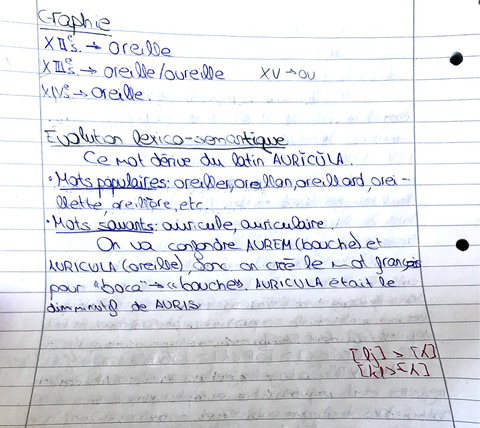 Graphie
XIIᵉs. → oreille
XIIIᵉs. → oreille/oureille XV → ou
XIVᵉs → oreille.
Évolution lexico-sémantique
Ce mot dérive du latin AURĬCŬLA.
• Mots populaires: oreiller, oreillon, oreillard, orei-
llette, oreillère, etc.
• Mots savants: auricule, auriculaire.
On va confondre AUREM (bouche) et
AURICULA (oreille), donc on crée le mot français
pour "boca" → «bouche» AURICULA était le
diminutif de AURIS
[lj] > [ʎ]
> [ʎ]